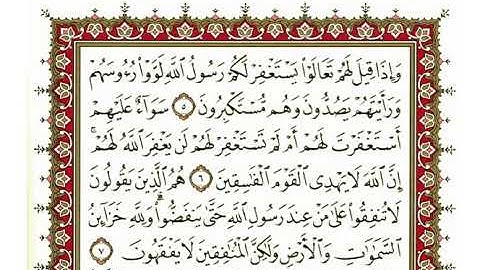 وَإِذَا قِيلَ لَهُمْ تَعَالَوْا۟ يَسْتَغْفِرْ لَكُمْ رَسُولُ ٱللَّهِ لَوَّوْا۟ رُءُوسَهُمْ
وَرَأَيْتَهُمْ يَصُدُّونَ وَهُم مُّسْتَكْبِرُونَ ٥ سَوَآءٌ عَلَيْهِمْ
أَسْتَغْفَرْتَ لَهُمْ أَمْ لَمْ تَسْتَغْفِرْ لَهُمْ لَن يَغْفِرَ ٱللَّهُ لَهُمْ ۚ
إِنَّ ٱللَّهَ لَا يَهْدِى ٱلْقَوْمَ ٱلْفَٰسِقِينَ ٦ هُمُ ٱلَّذِينَ يَقُولُونَ
لَا تُنفِقُوا۟ عَلَىٰ مَنْ عِندَ رَسُولِ ٱللَّهِ حَتَّىٰ يَنفَضُّوا۟ ۗ وَلِلَّهِ خَزَآئِنُ
ٱلسَّمَٰوَٰتِ وَٱلْأَرْضِ وَلَٰكِنَّ ٱلْمُنَٰفِقِينَ لَا يَفْقَهُونَ ٧